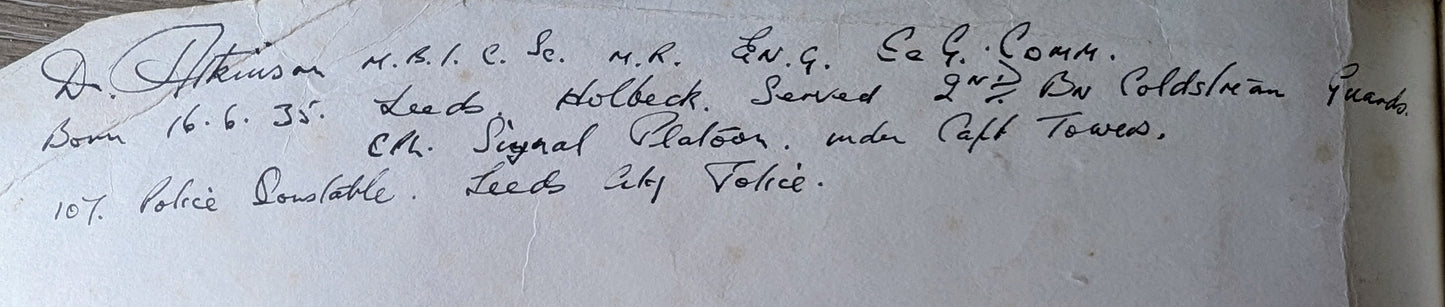 Dr. Atkinson M.B.I.C.Sc. M.R. EN.G. Ee G. Comm.
Born 16.6.35. Leeds. Holbeck. Served 2ND Bn Coldstream Guards.
CPL. Signal Platoon. under Capt Towers.
107. Police Constable. Leeds City Police.